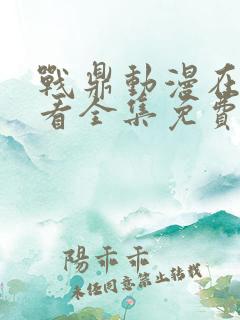 戰鼎動漫在
看全集免費
陽乖乖
未經同意禁止轉載